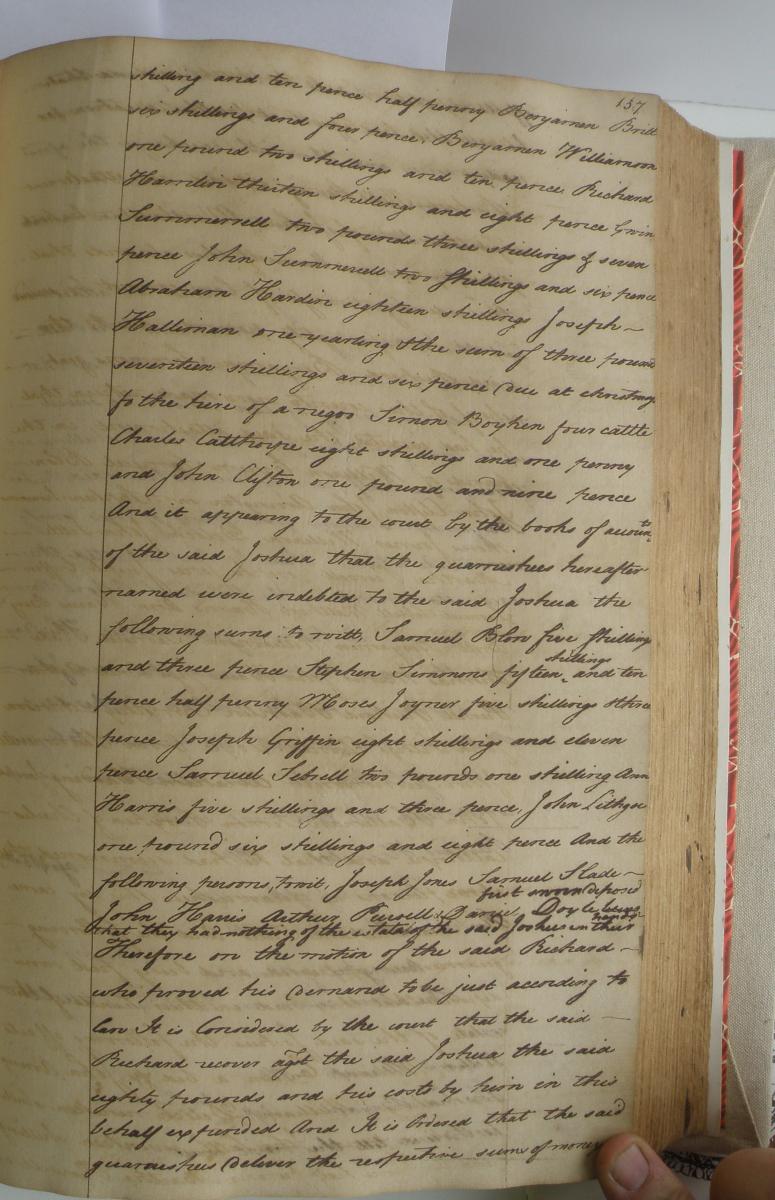 157
shilling and ten pence half penny Benjamen Britt
six shillings and four pence, Benjamen Williamson
one pound two shillings and ten pence Richard
Hardin thirteen shillings and eight pence
Summerrell two pounds three shillings & seven
pence John Summerell two shillings and six pence
Abraham Hardin eighteen shillings Joseph
Halliman one yearling & the sum of three pound
seventeen shillings and six pence due at christmas
fo the hire of a negro Simon Boyken four cattle
Charles Catthorpe eight shillings and one penny
and John Clifton one pound and nine pence
And it appearing to the court by the books of accounts
of the said Joshua that the guarnishees hereafter
named were indebted to the said Joshua the
following sums to witt, Samuel Blow five shillings
and three pence Stephen Simmons fifteen shillings and ten
pence half penny Moses Joyner five shillings & three
pence Joseph Griffin eight shillings and eleven
pence Samuel Sebrell two pounds one shilling Ann
Harris five shillings and three pence, John Lithgo
one pound six shillings and eight pence And the
following persons, towit, Joseph Jones Samuel Slade
first sworn deposed
John Harris Arthur Pursell & Daniel Doyle being
that they had nothing of the estate of the said Joshua in their hands
Therefore on the motion of the said Richard
who proved his demand to be just according to
law It is Considered by the court that the said
Richard recover agst the said Joshua the said
eighty pounds and his costs by him in this
behalf expended And It is Ordered that the said
guarnishees deliver the respective sums of money